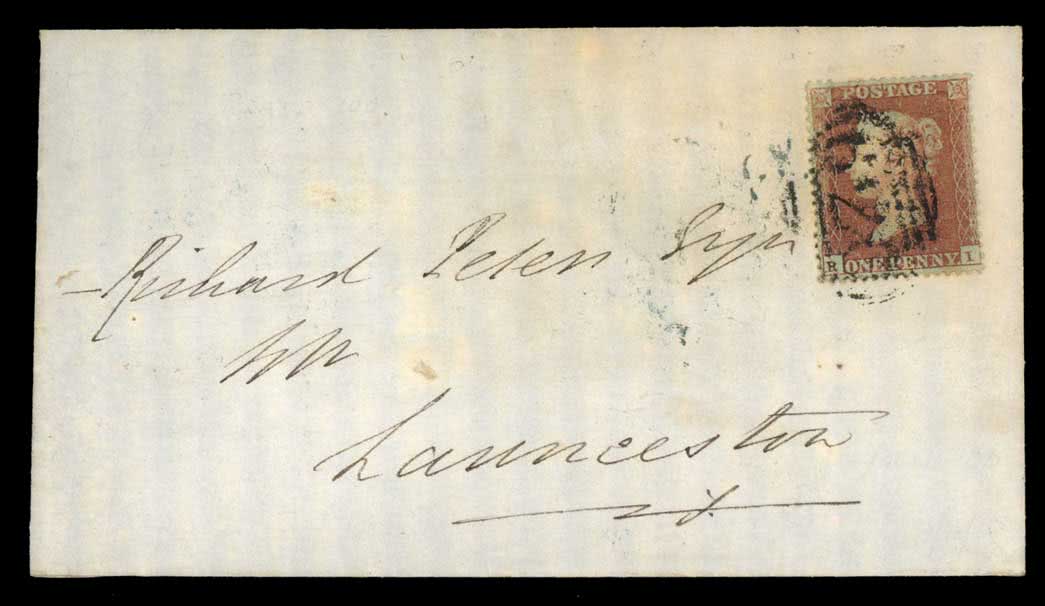 POSTAGE
ONE PENNY
R I
Richard Peter Esqr
Launceston